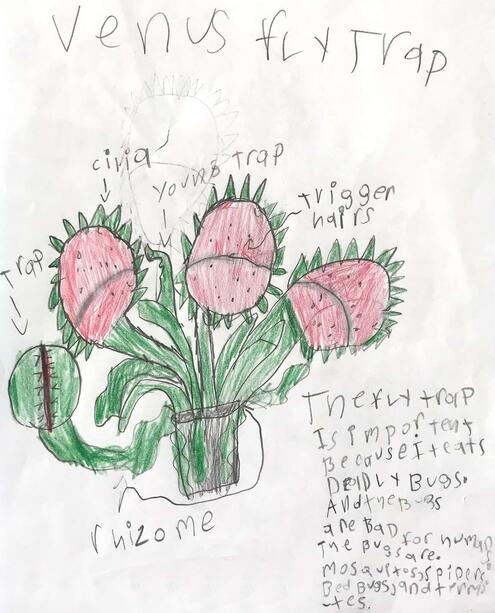 Venus fly Trap
cilia
young trap
trigger
hairs
Trap
rhizome
The fly trap
Is importent
Because it eats
DEADLY BUGS.
And the BUGS
are BAD for humans
The Bugs are.
mosquitos, spiders,
Bed Bugs, and termi
-tes.